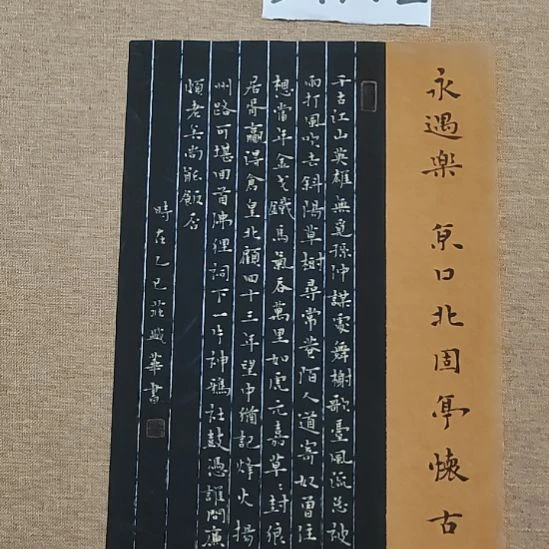 永遇樂 京口北固亭懷古
千古江山英雄無覓孫仲謀處舞榭歌臺風流總被
雨打風吹去斜陽草樹尋常巷陌人道寄奴曾住
想當年金戈鐵馬氣吞萬里如虎元嘉草草封狼
居胥贏得倉皇北顧四十三年望中猶記烽火揚
州路可堪回首佛狸祠下一片神鴉社鼓憑誰問廉
頗老矣尚能飯否
時在乙巳莊盛華書